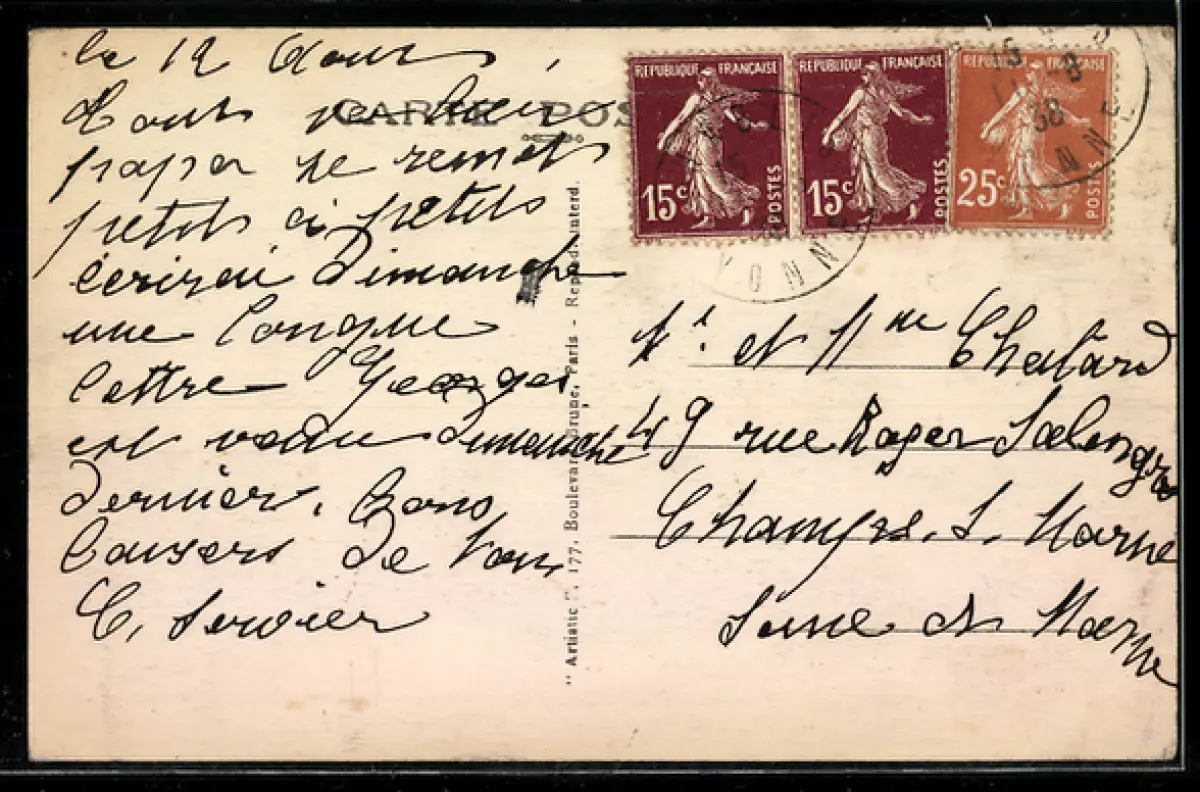 le 12 Aout
Tout va bien
papa se remet
petits à petits
écrirai Dimanche
une longue
lettre Georges
est venu dimanche
dernier. Bons
baisers de tous
C. Servier
CARTE POS
RÉPUBLIQUE FRANÇAISE
15c
POSTES
RÉPUBLIQUE FRANÇAISE
15c
POSTES
RÉPUBLIQUE FRANÇAISE
25c
POSTES
YONNE
38
"Artistic", 177, Boulevard Brune, Paris - Reprod. interd.
Mr. et Mme Chalard
49 rue Roger Salengro
Champs. s. Marne
Seine et Marne